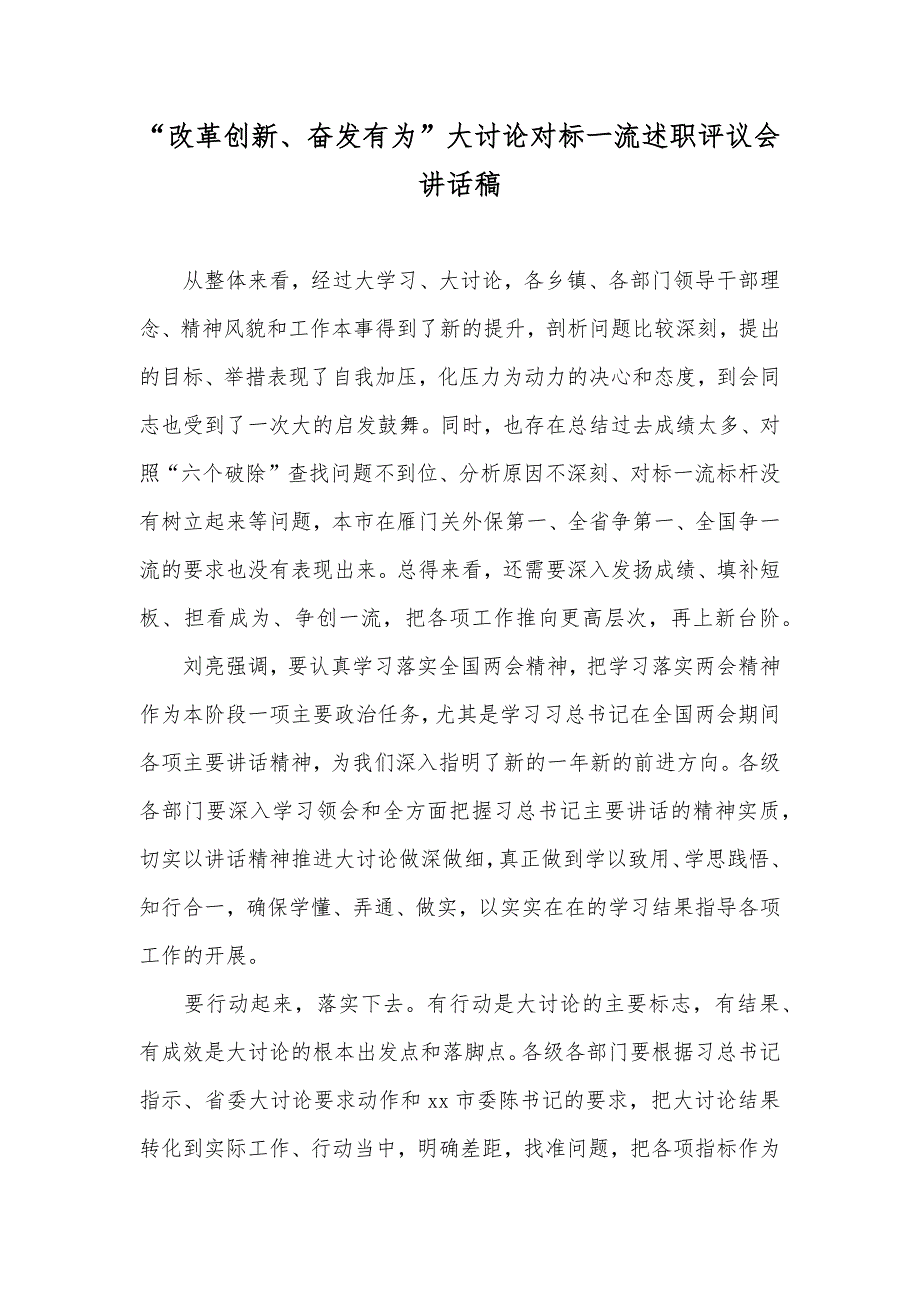 “改革创新、奋发有为”大讨论对标一流述职评议会
讲话稿
从整体来看，经过大学习、大讨论，各乡镇、各部门领导干部理
念、精神风貌和工作本事得到了新的提升，剖析问题比较深刻，提出
的目标、举措表现了自我加压，化压力为动力的决心和态度，到会同
志也受到了一次大的启发鼓舞。同时，也存在总结过去成绩太多、对
照“六个破除”查找问题不到位、分析原因不深刻、对标一流标杆没
有树立起来等问题，本市在雁门关外保第一、全省争第一、全国争一
流的要求也没有表现出来。总得来看，还需要深入发扬成绩、填补短
板、担看成为、争创一流，把各项工作推向更高层次，再上新台阶。
刘亮强调，要认真学习落实全国两会精神，把学习落实两会精神
作为本阶段一项主要政治任务，尤其是学习习总书记在全国两会期间
各项主要讲话精神，为我们深入指明了新的一年新的前进方向。各级
各部门要深入学习领会和全方面把握习总书记主要讲话的精神实质，
切实以讲话精神推进大讨论做深做细，真正做到学以致用、学思践悟、
知行合一，确保学懂、弄通、做实，以实实在在的学习结果指导各项
工作的开展。
要行动起来，落实下去。有行动是大讨论的主要标志，有结果、
有成效是大讨论的根本出发点和落脚点。各级各部门要根据习总书记
指示、省委大讨论要求动作和 xx 市委陈书记的要求，把大讨论结果
转化到实际工作、行动当中，明确差距，找准问题，把各项指标作为